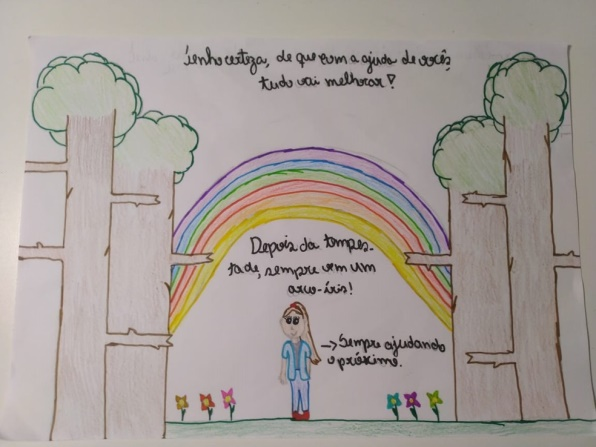 Tenho certeza, de que com a ajuda de vocês,
tudo vai melhorar!
Depois da tempes-
tade, sempre vem um
arco-íris!
→ Sempre ajudando
o próximo.